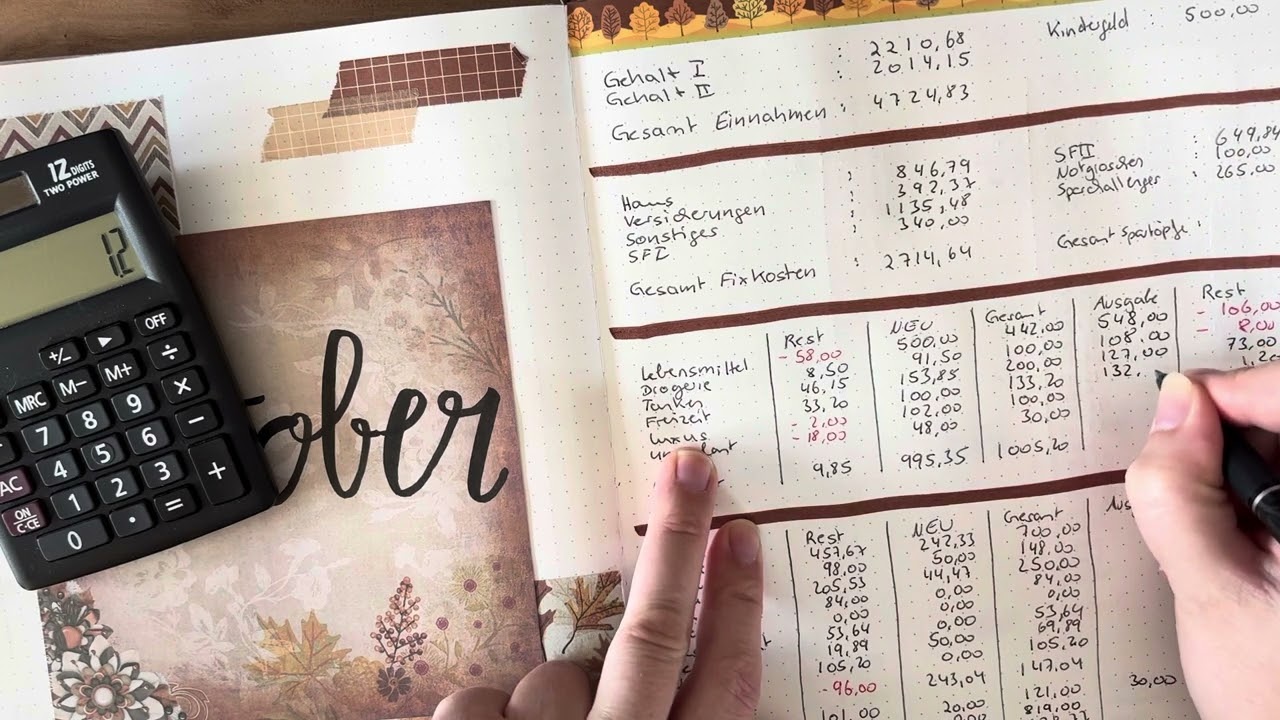 Kindergeld : 500,00
Gehalt I : 2210,68
Gehalt II : 2014,15
Gesamt Einnahmen : 4724,83
Haus : 846,79
Versicherungen : 392,37
Sonstiges : 1135,48
SF I : 340,00
Gesamt Fixkosten : 2714,64
SF II : 649,84
Notgroschen : 100,00
Sparchallenges : 265,00
Gesamt Spartöpfe :
Rest NEU Gesamt Ausgabe Rest
Lebensmittel - 58,00 500,00 442,00 548,00 - 106,00
Drogerie 8,50 91,50 100,00 108,00 - 8,00
Tanken 46,15 153,85 200,00 127,00 73,00
Freizeit 33,20 100,00 133,20 132, 1,20
Luxus - 2,00 102,00 100,00
- 18,00 48,00 30,00
9,85 995,35 1005,20
Rest NEU Gesamt
457,67 242,33 700,00
98,00 50,00 148,00
205,53 44,47 250,00
84,00 0,00 84,00
0,00 0,00 0,00
53,64 0,00 53,64
19,89 50,00 69,89
105,20 0,00 105,20
- 96,00 243,04 147,04
101,00 20,00 121,00 30,00
819,00
12 DIGITS
TWO POWER
12
OFF
+/- ► ÷
MRC M- M+ ×
7 8 9 -
AC 4 5 6 +
ON/C·CE 1 2 3
0 . =
ober